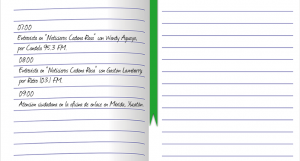 07:00
Entrevista en "Noticiero Cadena Rasa" con Wendy Aguayo,
por Candela 95.3 FM.
08:00
Entrevista en "Noticiero Cadena Rasa" con Gaston Lamberry
por Retro 103.1 FM.
09:00
Atención ciudadana en la oficina de enlace en Mérida, Yucatán.